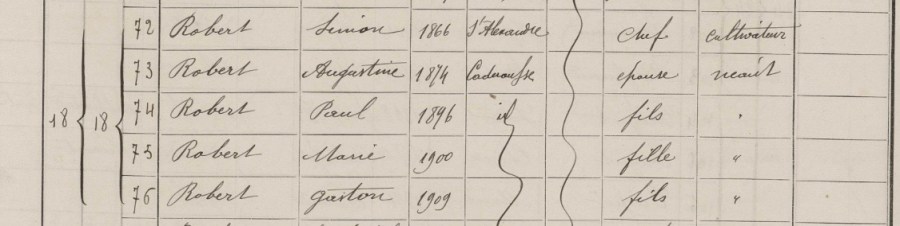 72 Robert Simon 1866 St Alexandre chef cultivateur
73 Robert Augustine 1874 épouse néant
18 18 74 Robert Paul 1896 id fils "
75 Robert Marie 1900 fille "
76 Robert gaston 1909 fils "